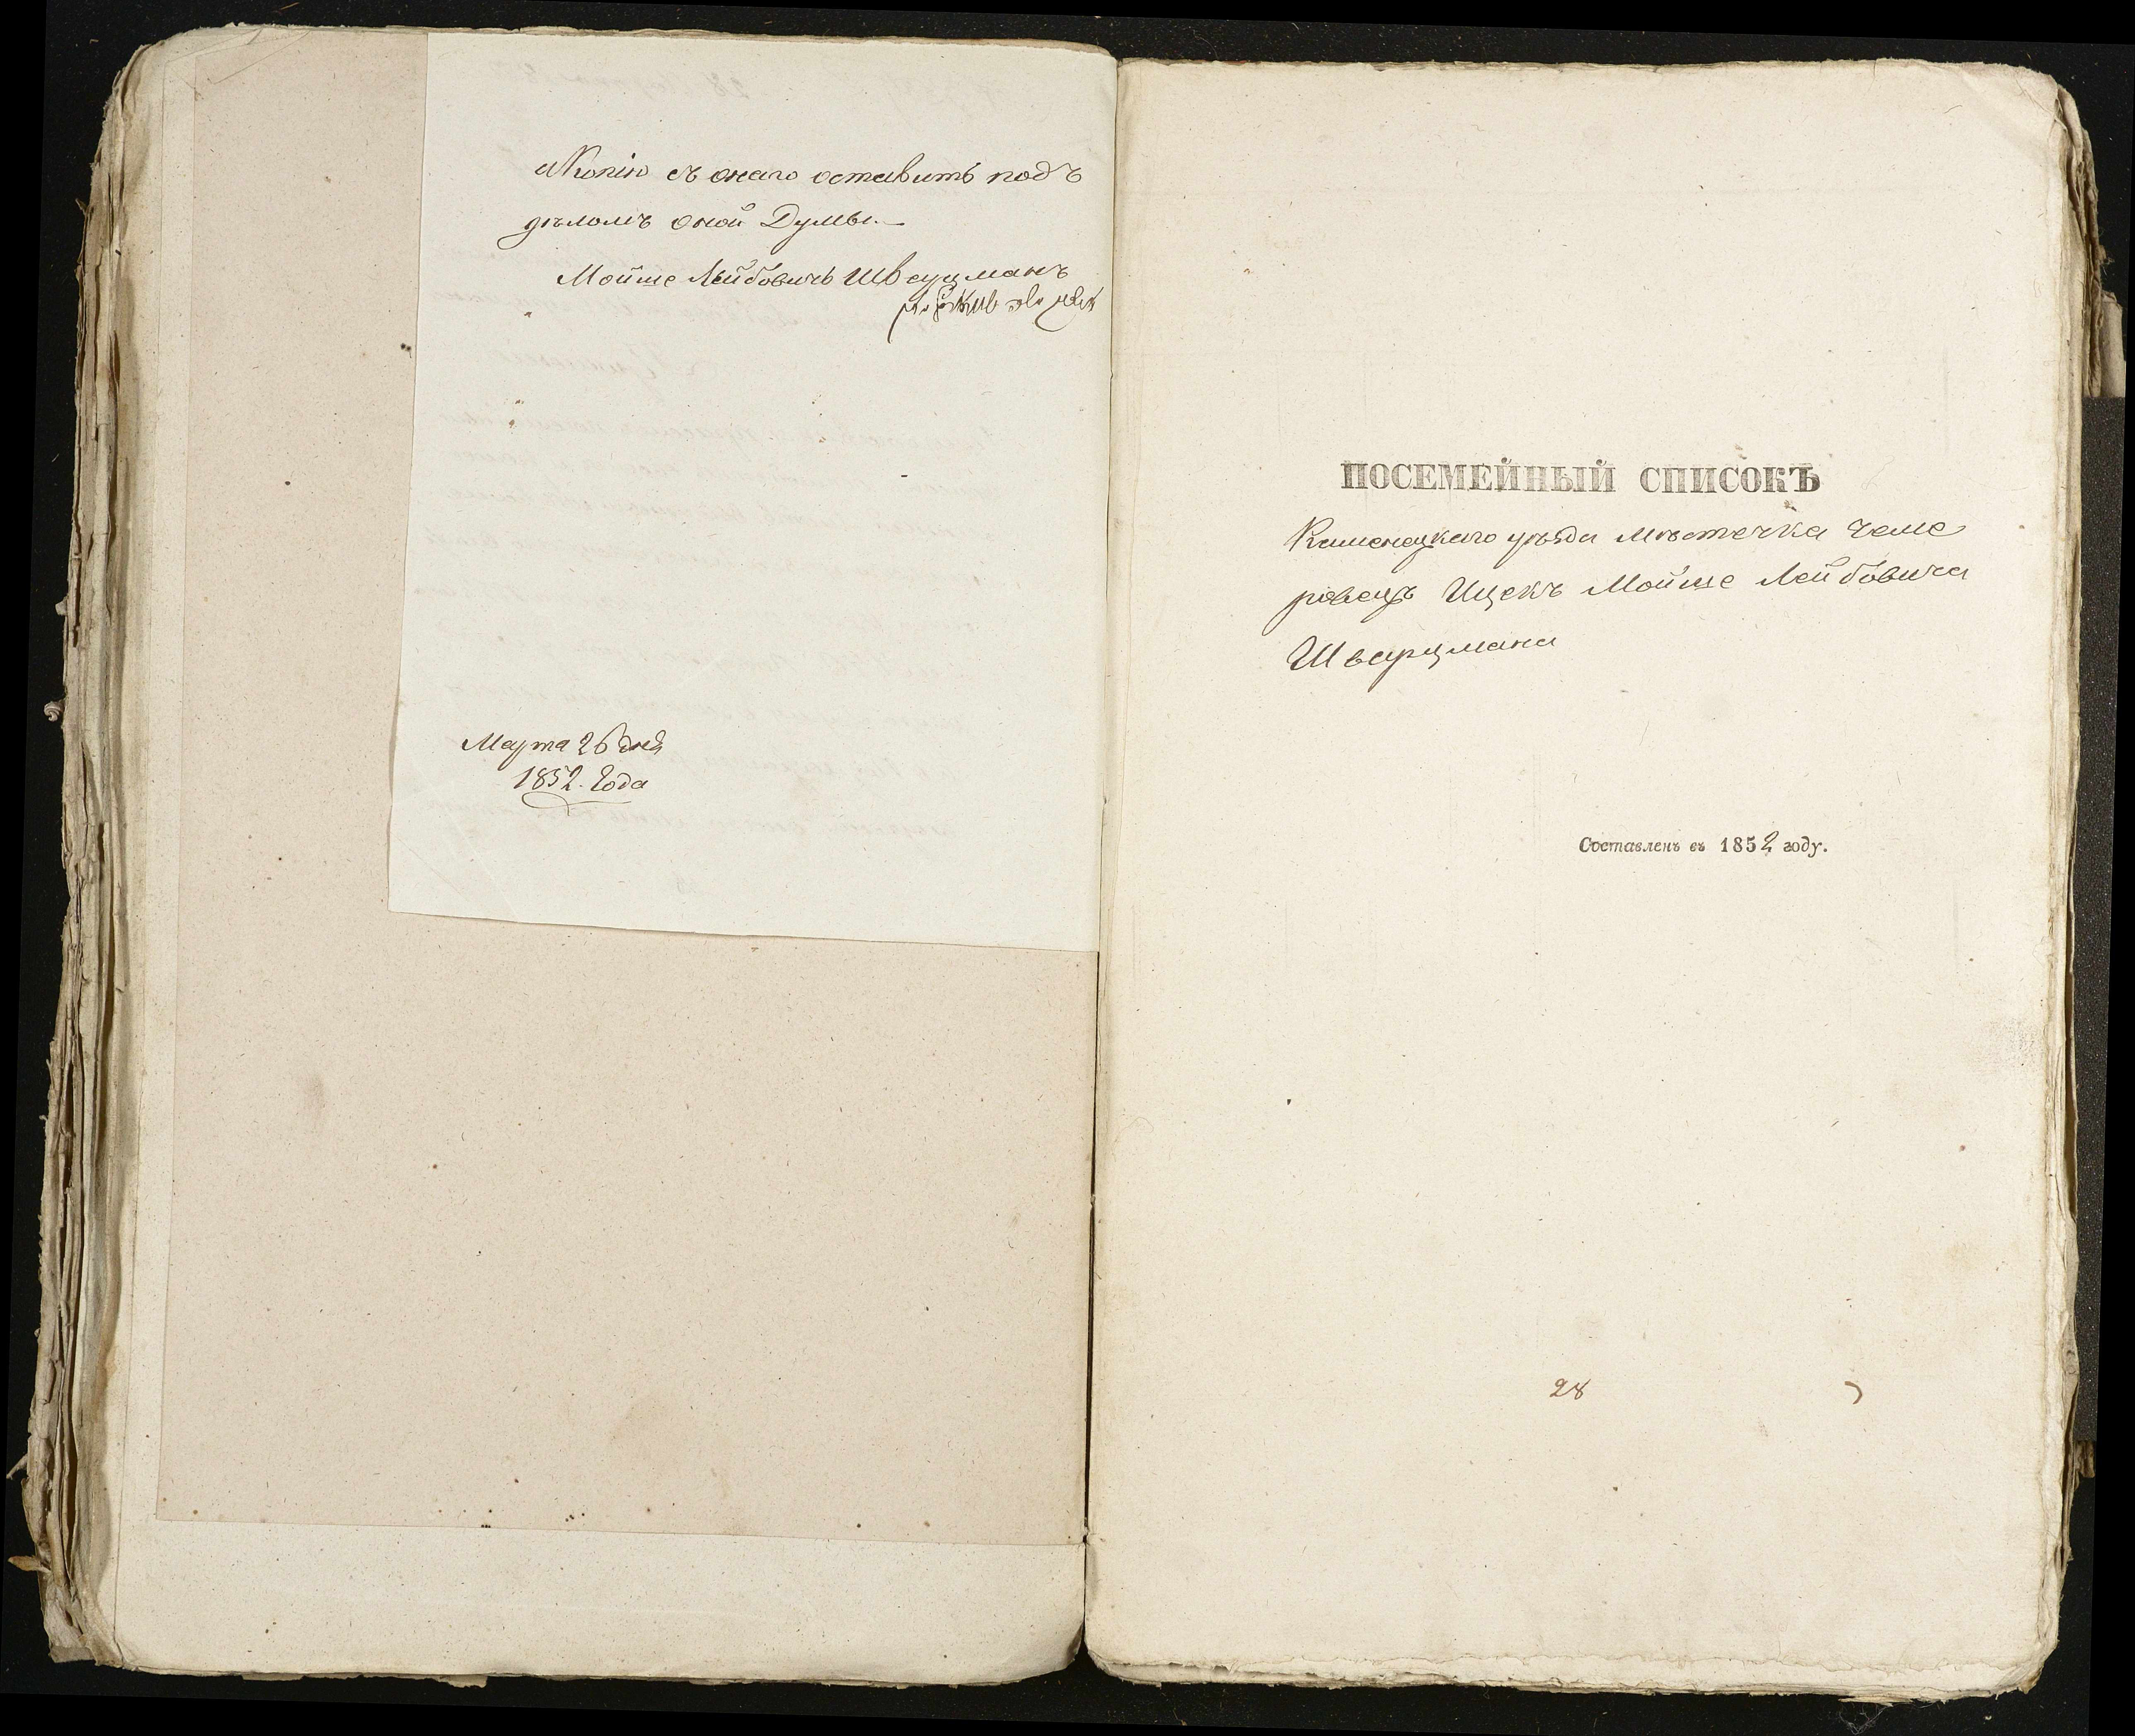 а Копію съ онаго оставить подъ
дѣломъ оной Думы.—
Мойше Лейбовичъ Шварцманъ
Марта 26 дня
1852. Года
ПОСЕМЕЙНЫЙ СПИСОКЪ
Каменецкаго уѣзда Мѣстечка Чеме
ровецъ Ицекъ Мойше Лейбовича
Шварцмана
Составленъ въ 1852 году.
28